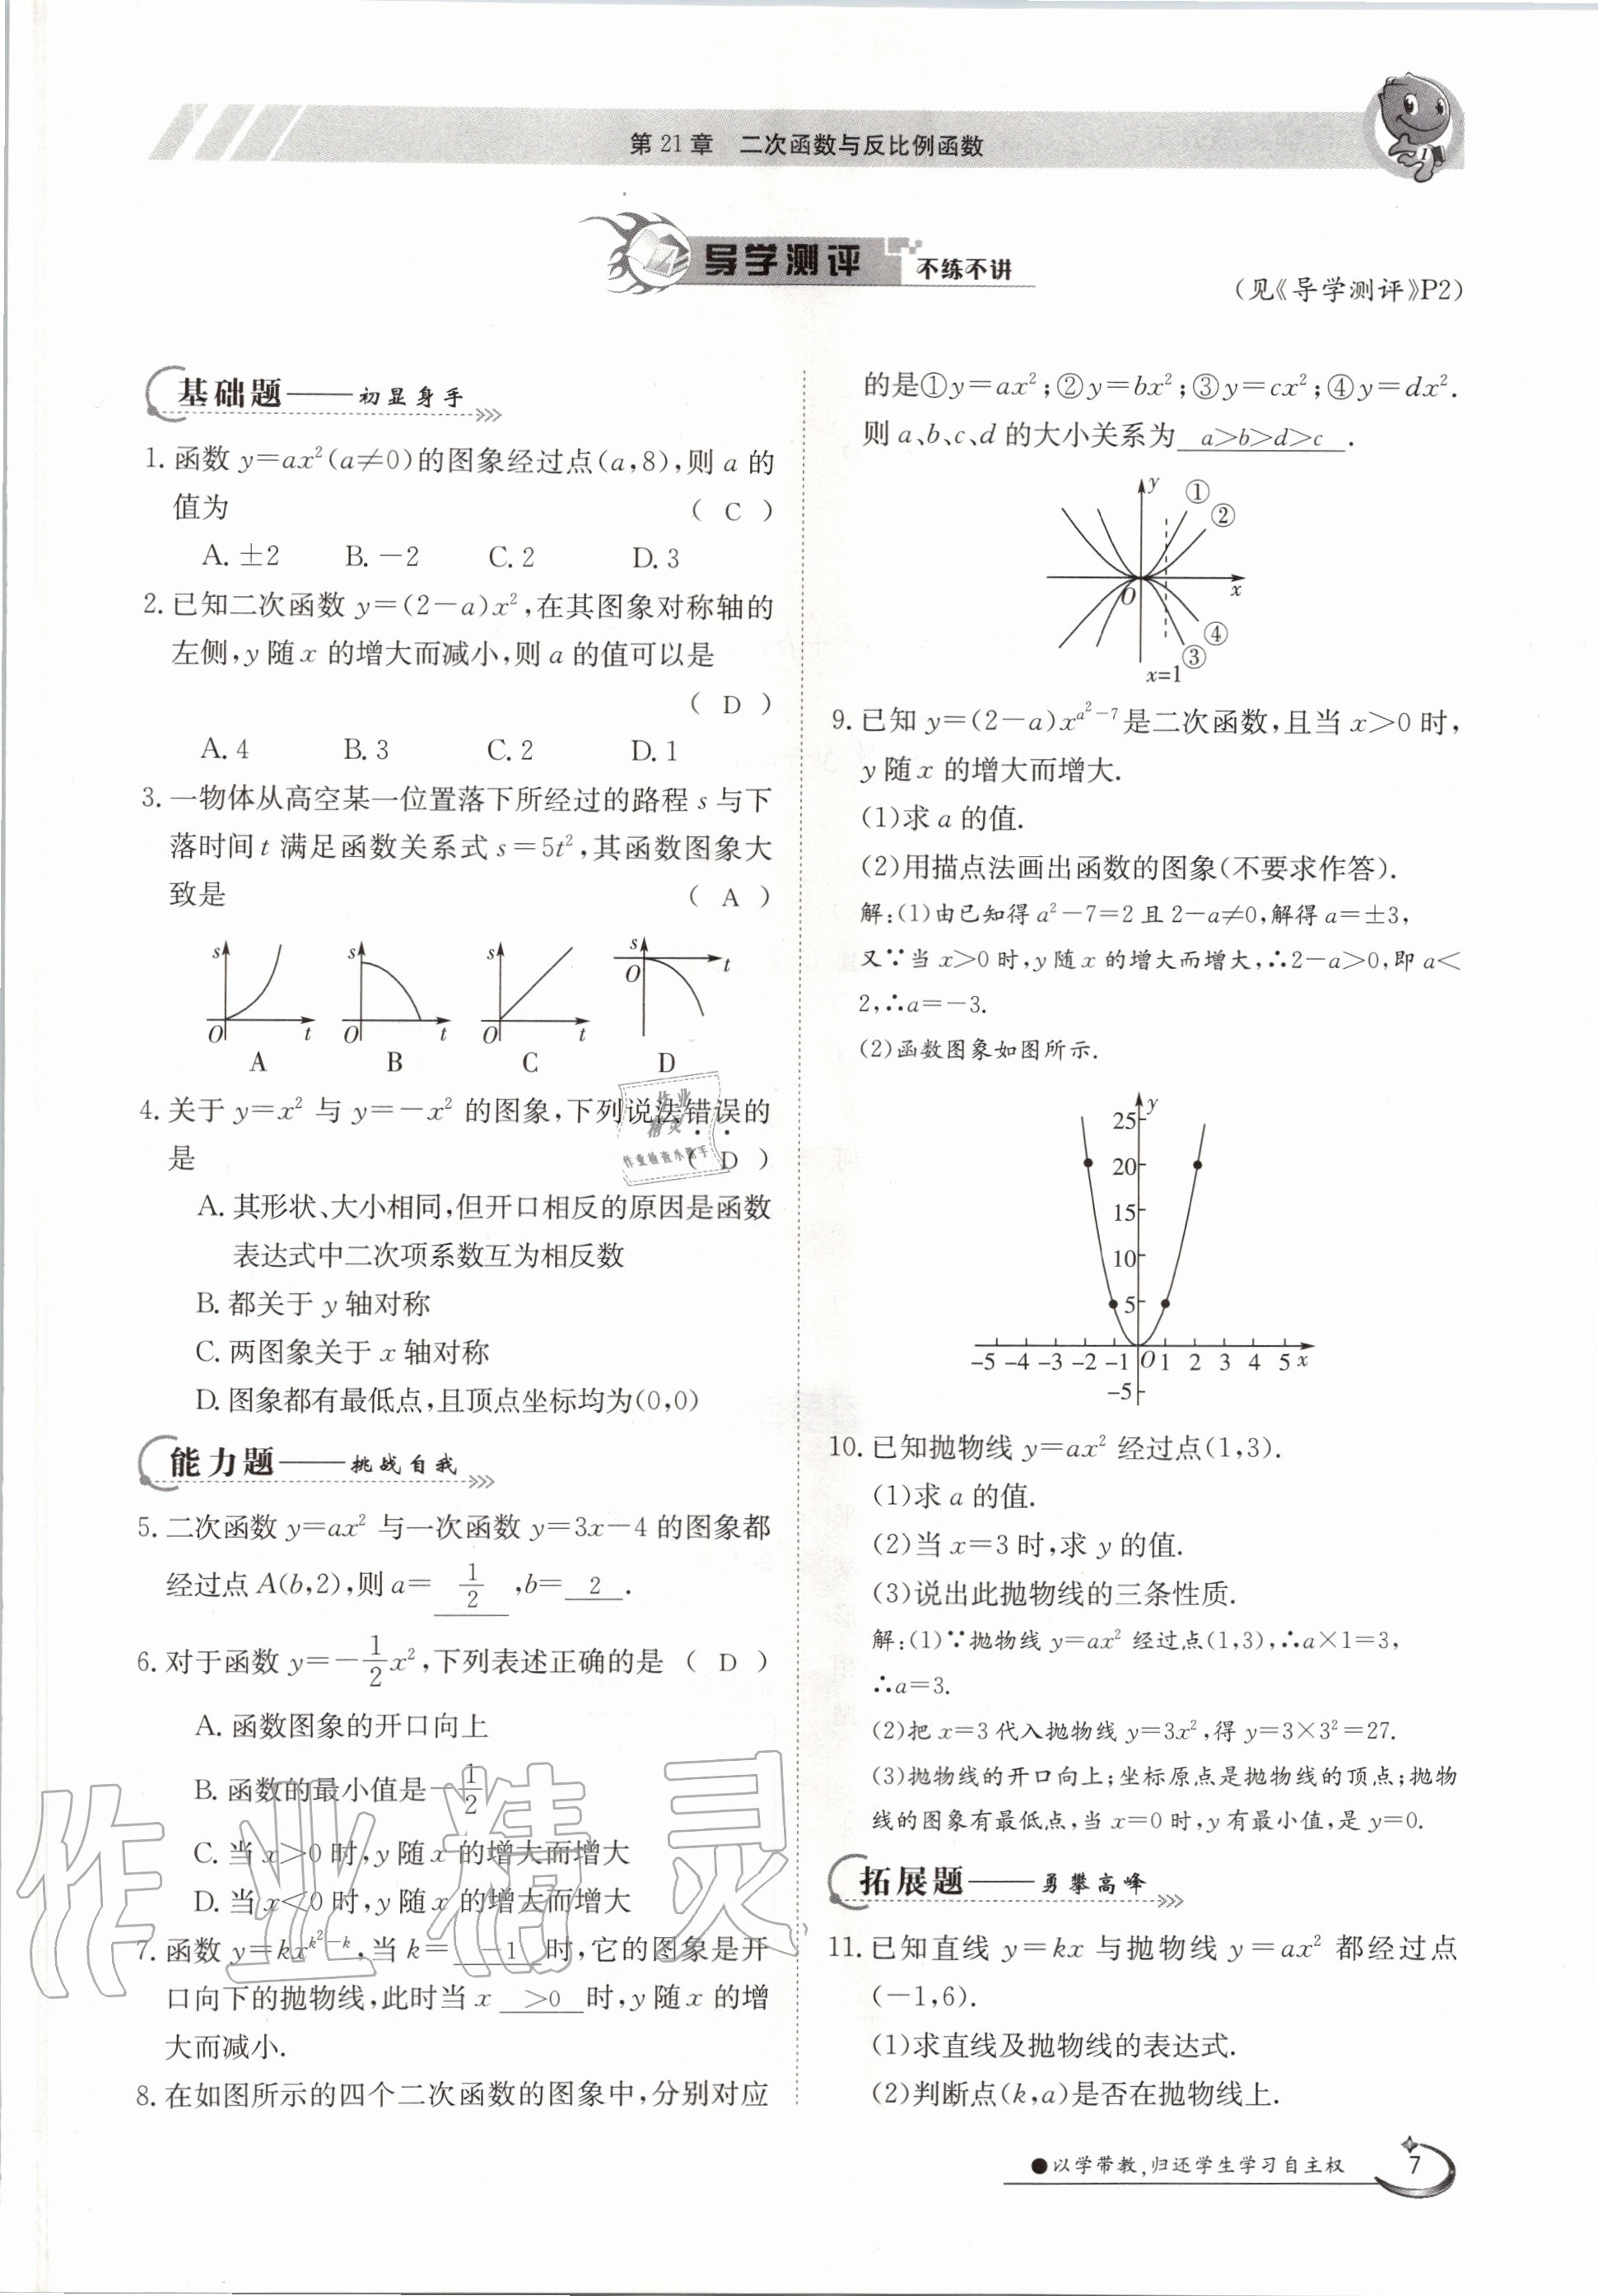 第21章 二次函数与反比例函数
导学测评 不练不讲
(见《导学测评》P2)
基础题——初显身手
1. 函数 y=ax²(a≠0)的图象经过点(a,8),则 a 的
值为 ( C )
A. ±2 B. -2 C. 2 D. 3
2. 已知二次函数 y=(2-a)x²,在其图象对称轴的
左侧,y 随 x 的增大而减小,则 a 的值可以是
( D )
A. 4 B. 3 C. 2 D. 1
3. 一物体从高空某一位置落下所经过的路程 s 与下
落时间 t 满足函数关系式 s=5t²,其函数图象大
致是 ( A )
s O t s O t s O t s O t
A B C D
4. 关于 y=x² 与 y=-x² 的图象,下列说法错误的
是 ( D )
A. 其形状、大小相同,但开口相反的原因是函数
表达式中二次项系数互为相反数
B. 都关于 y 轴对称
C. 两图象关于 x 轴对称
D. 图象都有最低点,且顶点坐标均为(0,0)
能力题——挑战自我
5. 二次函数 y=ax² 与一次函数 y=3x-4 的图象都
经过点 A(b,2),则 a= 1/2 ,b= 2 .
6. 对于函数 y=-1/2x²,下列表述正确的是 ( D )
A. 函数图象的开口向上
B. 函数的最小值是-1/2
C. 当 x>0 时,y 随 x 的增大而增大
D. 当 x<0 时,y 随 x 的增大而增大
7. 函数 y=kx^(k²-k),当 k= -1 时,它的图象是开
口向下的抛物线,此时当 x >0 时,y 随 x 的增
大而减小.
8. 在如图所示的四个二次函数的图象中,分别对应
的是①y=ax²;②y=bx²;③y=cx²;④y=dx².
则 a、b、c、d 的大小关系为 a>b>d>c .
y ① ② O x ④ ③ x=1
9. 已知 y=(2-a)x^(a²-7)是二次函数,且当 x>0 时,
y 随 x 的增大而增大.
(1)求 a 的值.
(2)用描点法画出函数的图象(不要求作答).
解:(1)由已知得 a²-7=2 且 2-a≠0,解得 a=±3,
又∵当 x>0 时,y 随 x 的增大而增大,∴2-a>0,即 a<
2,∴a=-3.
(2)函数图象如图所示.
y
25
20
15
10
5
-5 -4 -3 -2 -1 O 1 2 3 4 5 x
-5
10. 已知抛物线 y=ax² 经过点(1,3).
(1)求 a 的值.
(2)当 x=3 时,求 y 的值.
(3)说出此抛物线的三条性质.
解:(1)∵抛物线 y=ax² 经过点(1,3),∴a×1=3,
∴a=3.
(2)把 x=3 代入抛物线 y=3x²,得 y=3×3²=27.
(3)抛物线的开口向上;坐标原点是抛物线的顶点;抛物
线的图象有最低点,当 x=0 时,y 有最小值,是 y=0.
拓展题——勇攀高峰
11. 已知直线 y=kx 与抛物线 y=ax² 都经过点
(-1,6).
(1)求直线及抛物线的表达式.
(2)判断点(k,a)是否在抛物线上.
●以学带教,归还学生学习自主权
7
作业精灵
作业
精灵
作业检查小助手